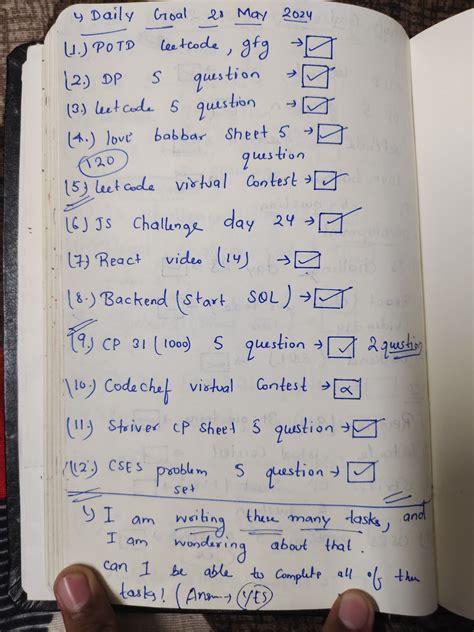 Daily Goal 28 May 2024
(1.) POTD leetcode, gfg → ☑
(2.) DP 5 question → ☑
(3.) leetcode 5 question → ☑
(4.) love babbar sheet 5 → ☑
120 question
(5.) leetcode virtual Contest → ☑
(6) JS Challenge day 24 → ☑
(7) React video (14) → ☑
(8.) Backend (Start SQL) → ☑
(9.) CP 31 (1000) 5 question → ☑ 2 question
(10.) Codechef virtual Contest → ☒
(11.) Striver CP Sheet 5 question → ☑
(12.) CSES problem 5 question → ☑
set
I am writing these many tasks, and
I am wondering about that.
can I be able to complete all of then
tasks! (Ans → YES